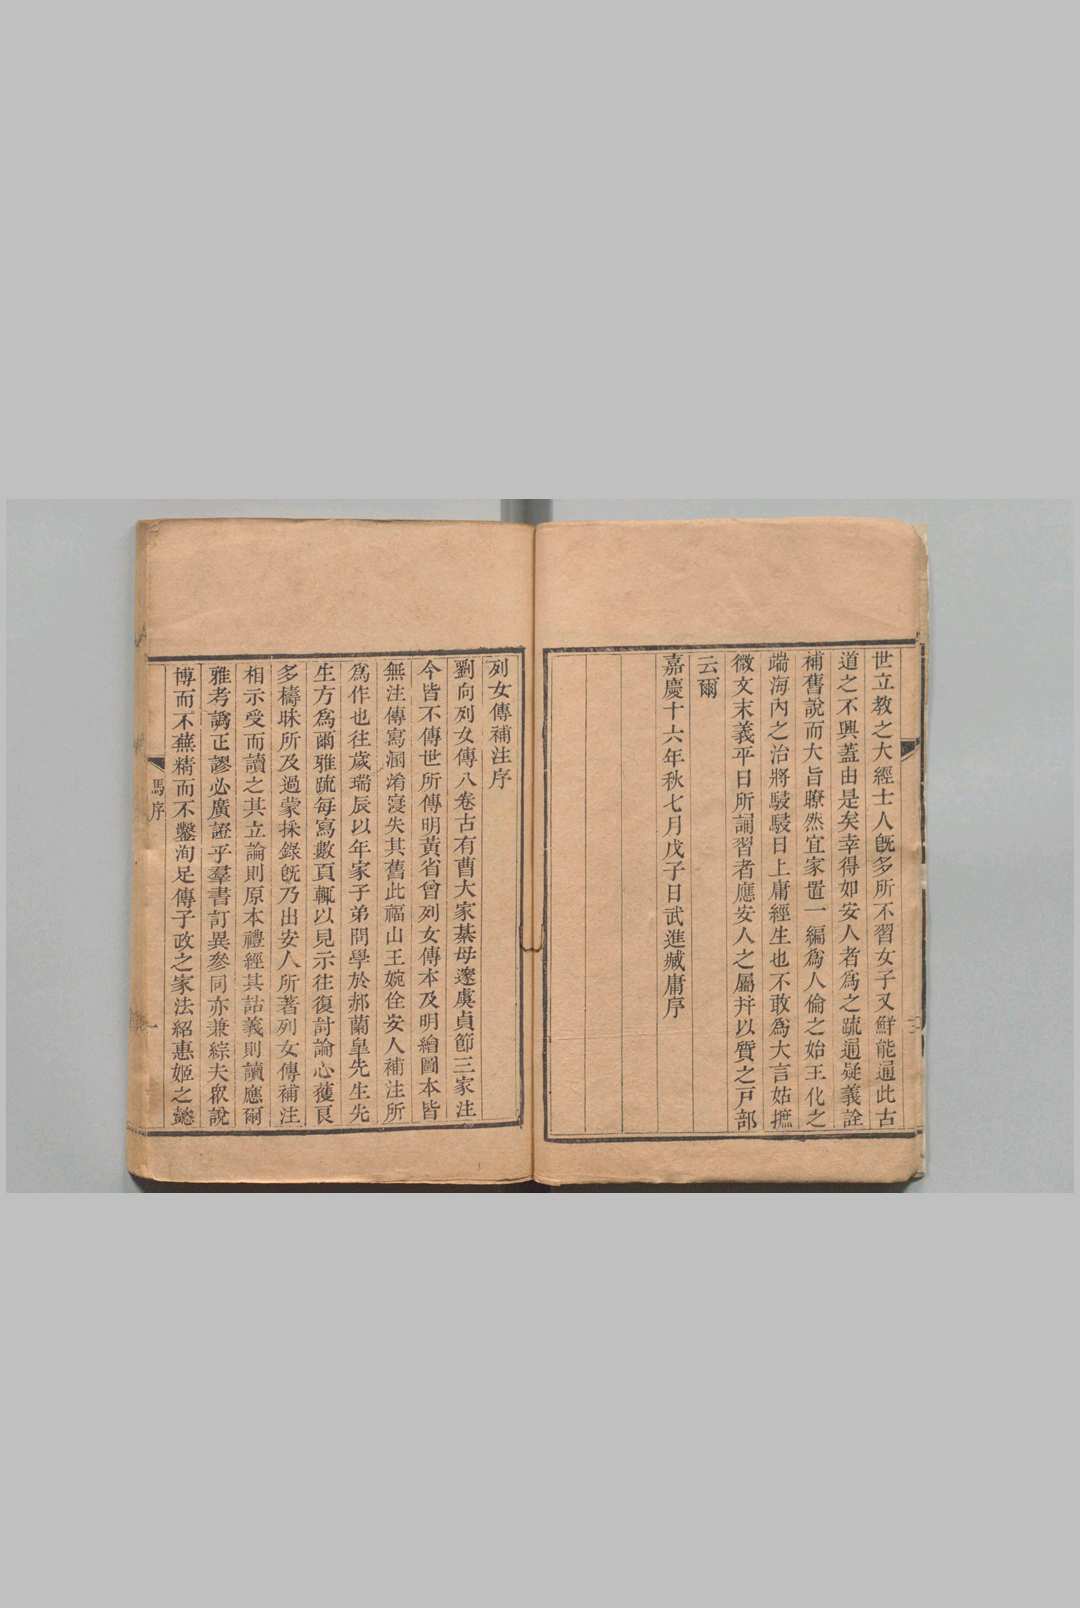 世立教之大經士人旣多所不習女子又鮮能通此古
道之不興蓋由是矣幸得如安人者爲之疏通疑義詮
補舊說而大旨瞭然宜家置一編爲人倫之始王化之
端海內之治將駸駸日上庸經生也不敢爲大言姑摭
微文末義平日所誦習者應安人之屬幷以質之戸部
云爾
嘉慶十六年秋七月戊子日武進臧庸序
列女傳補注序
劉向列女傳八卷古有曹大家綦母邃虞貞節三家注
今皆不傳世所傳明黃省曾列女傳本及明繪圖本皆
無注傳寫溷淆寖失其舊此福山王婉佺安人補注所
爲作也往歲瑞辰以年家子弟問學於郝蘭皐先生先
生方爲爾雅疏每寫數頁輒以見示往復討論心獲良
多檮昧所及過蒙採錄旣乃出安人所著列女傳補注
相示受而讀之其立論則原本禮經其詁義則讀應爾
雅考譌正謬必廣證乎羣書訂異參同亦兼綜夫眾說
博而不蕪精而不鑿洵足傳子政之家法紹惠姬之懿
馬序
一